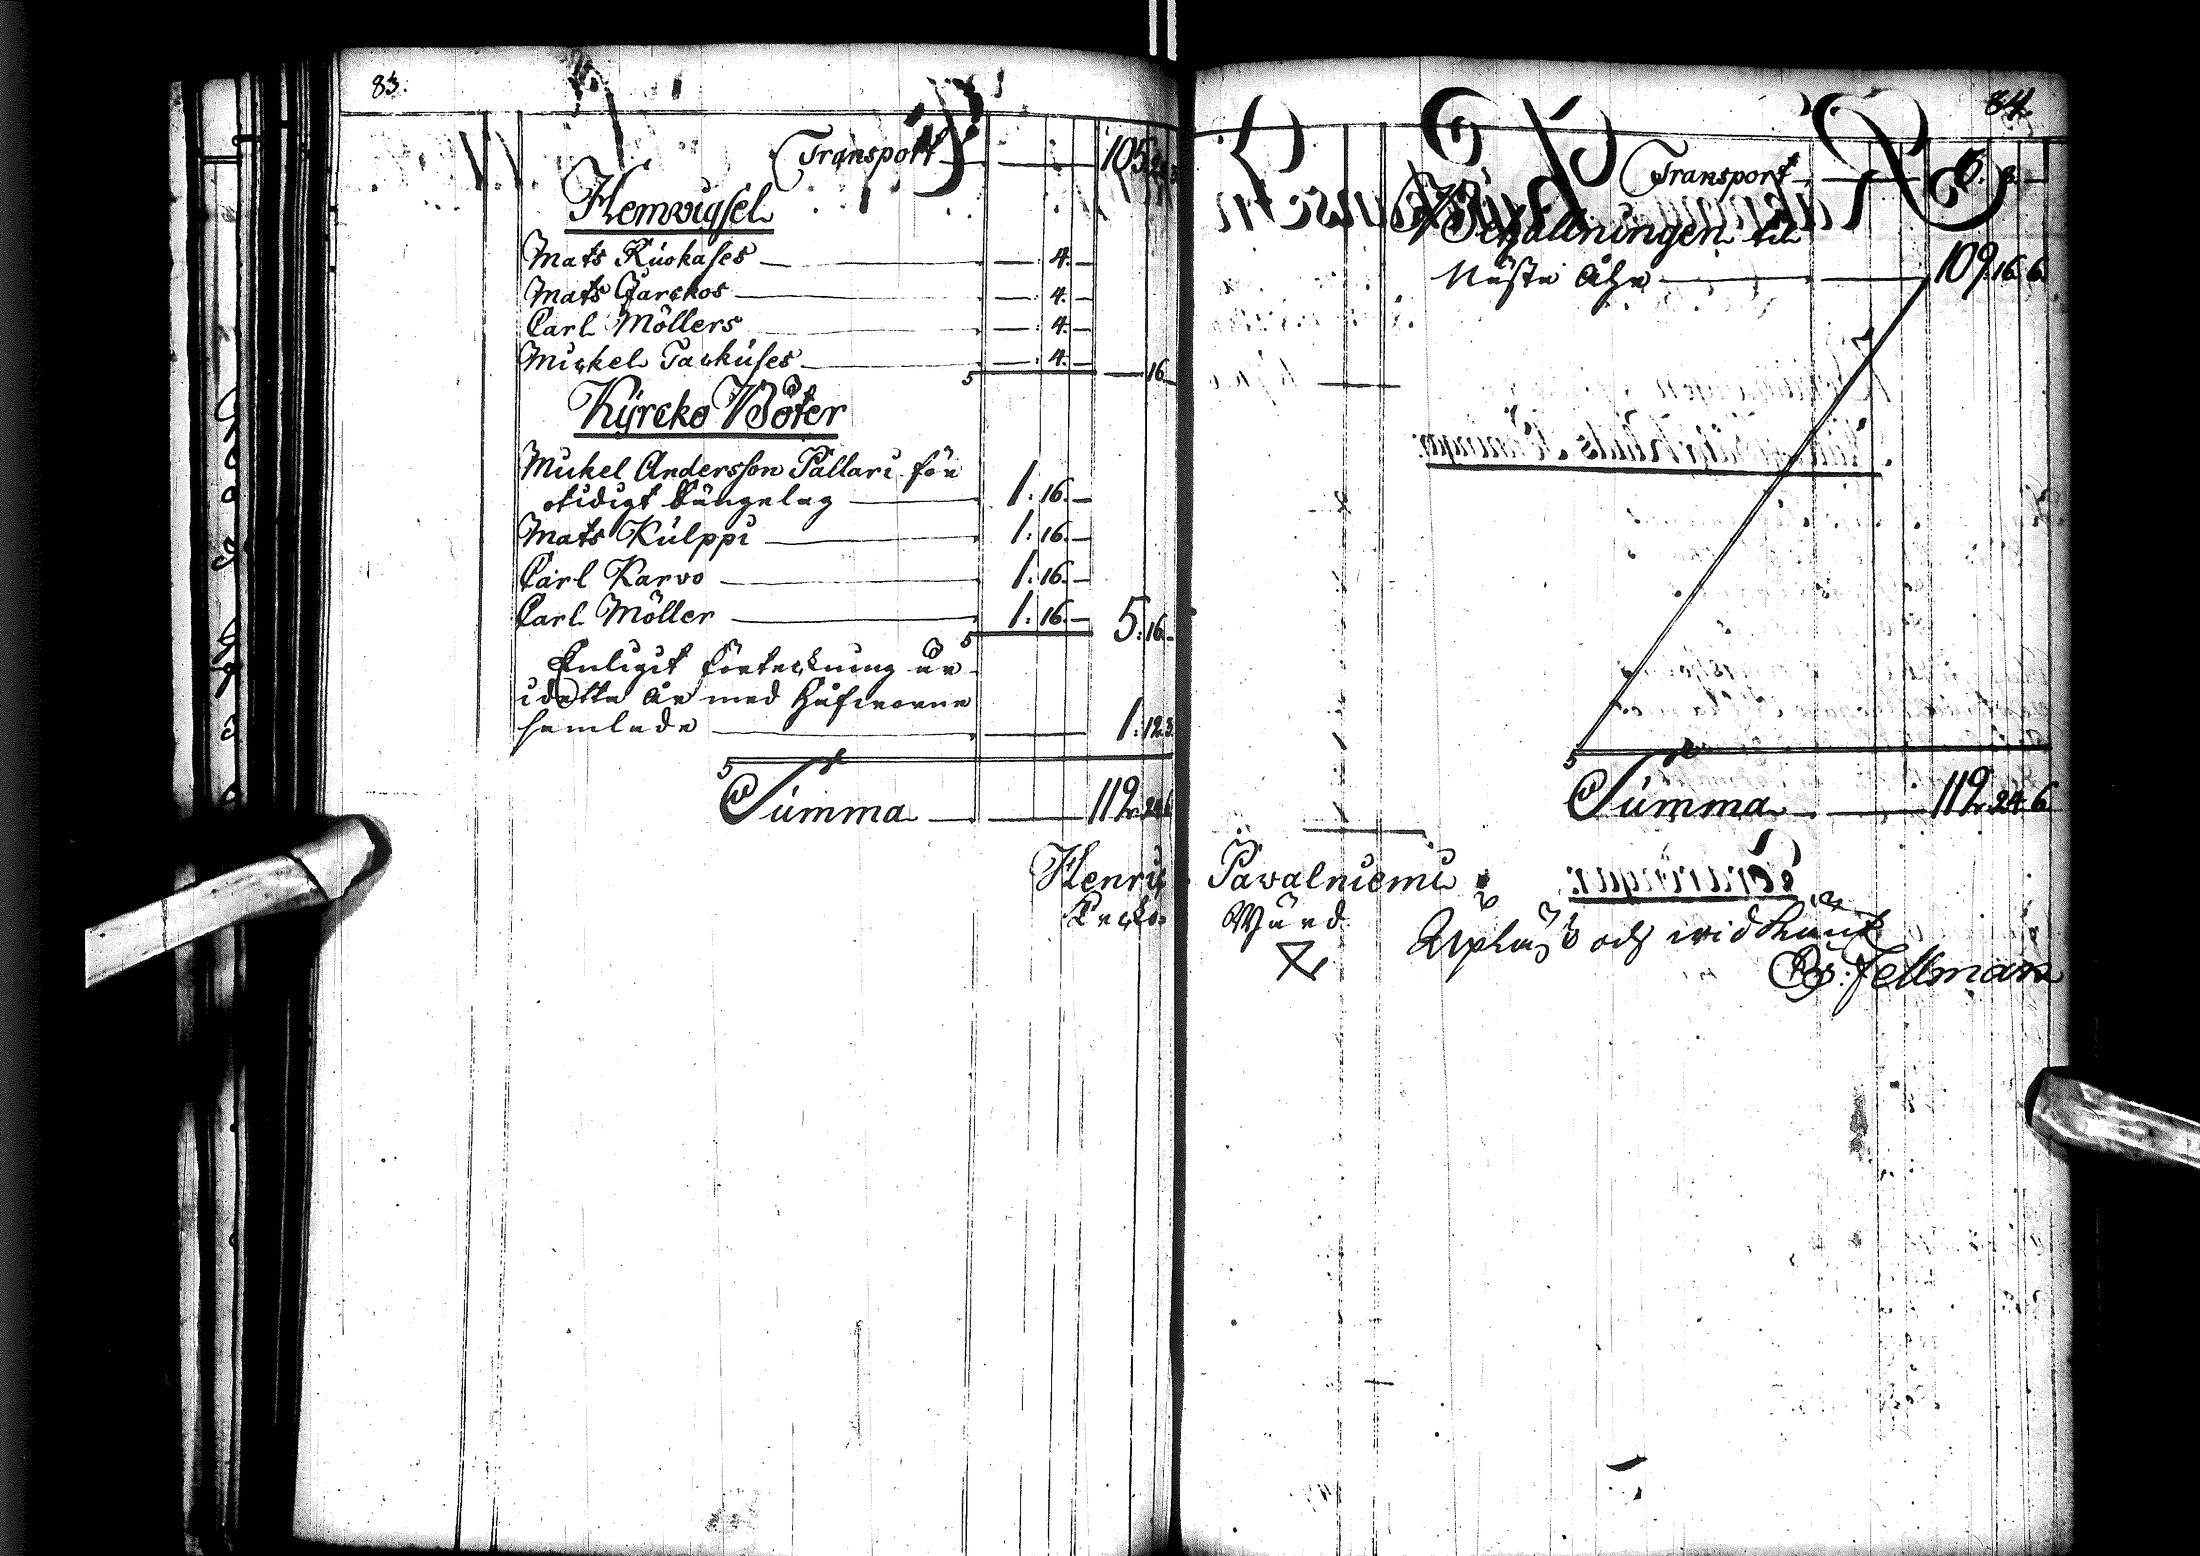 83.
Transport 105. 24. 3
Hemvigsel
Mats Ruokases — 4. —
Mats Jarckos — 4. —
Carl Möllers — 4. —
Mickel Tarkuses — 4. — — 16. —
Kyrcko Böter
Mickel Andersson Pallari för
otidigt sängelag 1. 16. —
Mats Kulppi 1. 16. —
Carl Karvo 1. 16. —
Carl Möller 1. 16. — 5. 16. —
Enligit förteckning är
i detta år med Håfverne
samlade 1. 12. 3
Summa 112. 24. 6
84
Transport 8. —
Behållningen til
Nästa Åhr 109. 16. 6
Summa 112. 24. 6
Henric Pavalniemi
Kyrko Wärd
Upläst och vidkänt
Es: Fellman